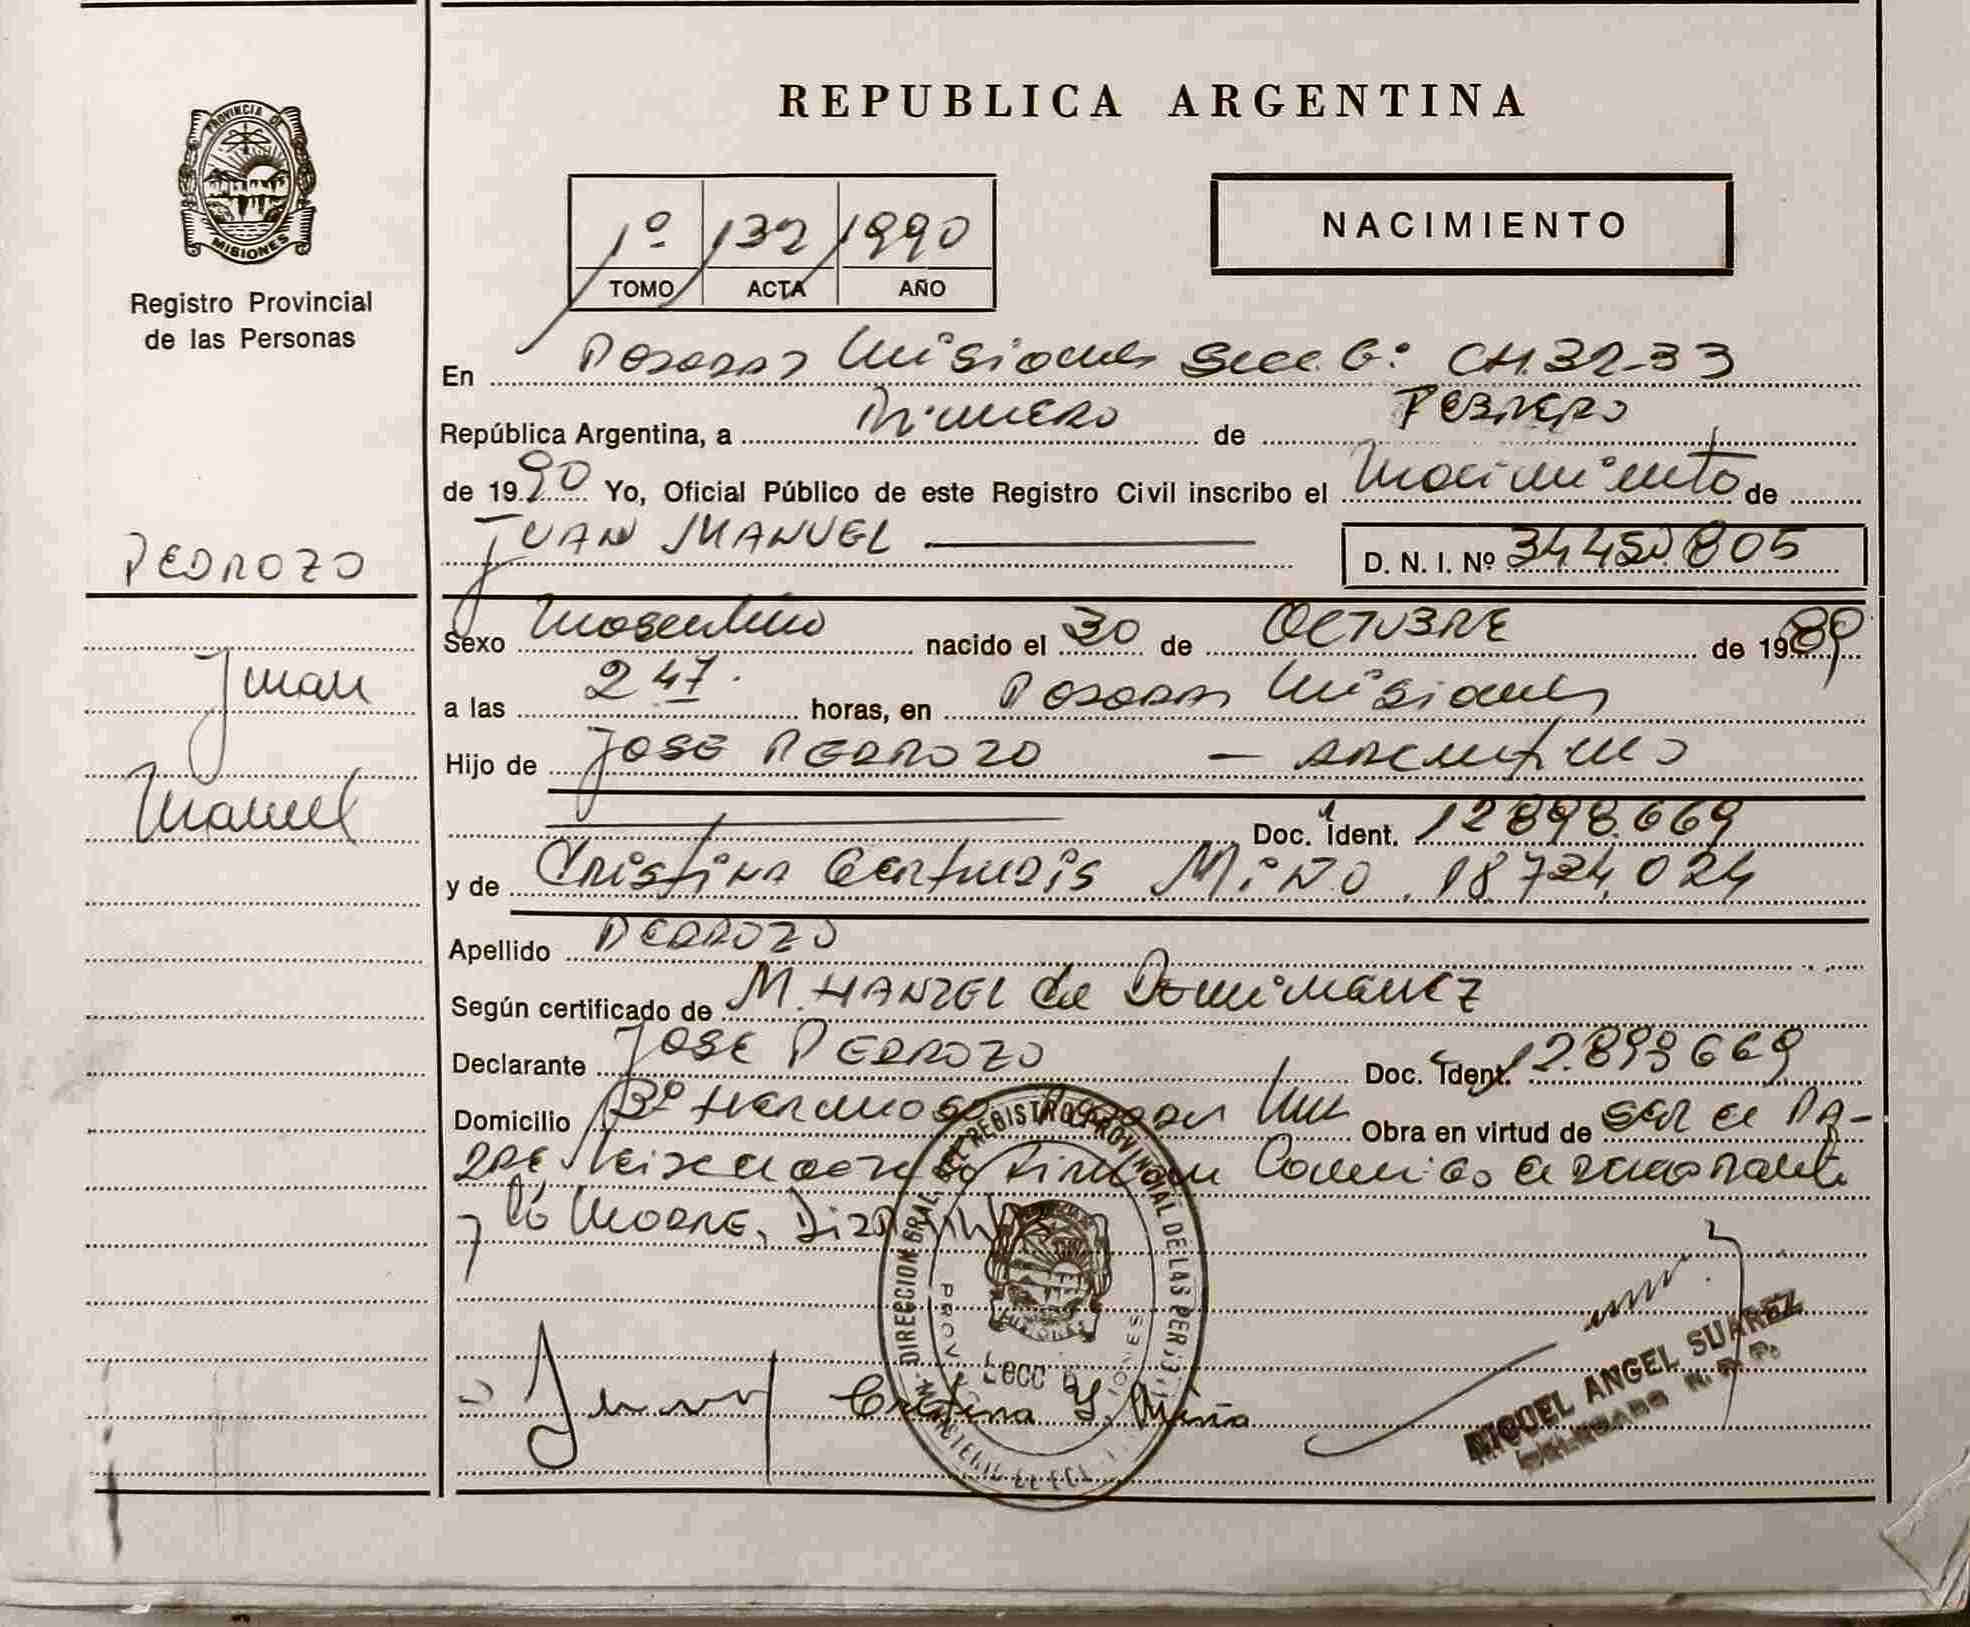 PROVINCIA DE
MISIONES
Registro Provincial
de las Personas
PEDROZO
Juan
Manuel
REPUBLICA ARGENTINA
1º 132 1990
TOMO ACTA AÑO
NACIMIENTO
En Posadas Misiones Secc. 6º CH.32-33
República Argentina, a Primero de FEBRERO
de 1990 Yo, Oficial Público de este Registro Civil inscribo el Nacimiento de
JUAN MANUEL D. N. I. Nº 34.450.805
Sexo Masculino nacido el 30 de OCTUBRE de 1989
a las 2 47. horas, en Posadas Misiones
Hijo de JOSE PEDROZO — ARGENTINO
Doc. Ident. 12.898.669
y de Cristina Gertrudis MIÑO. 18.724.024
Apellido PEDROZO
Según certificado de M. HANZEL de Dominguez
Declarante JOSE PEDROZO Doc. Ident. 12.898669
Domicilio Bº Hermoso Obra en virtud de SER el PA-
DRE, Leida el acta firman Conmigo el declarante
y la MADRE,
DIRECCION GRAL. DE REGISTRO PROVINCIAL DE LAS PERS
PROV. MISIONES
Cristina G. Miño
MIGUEL ANGEL SUAREZ
DELEGADO R. P. P.